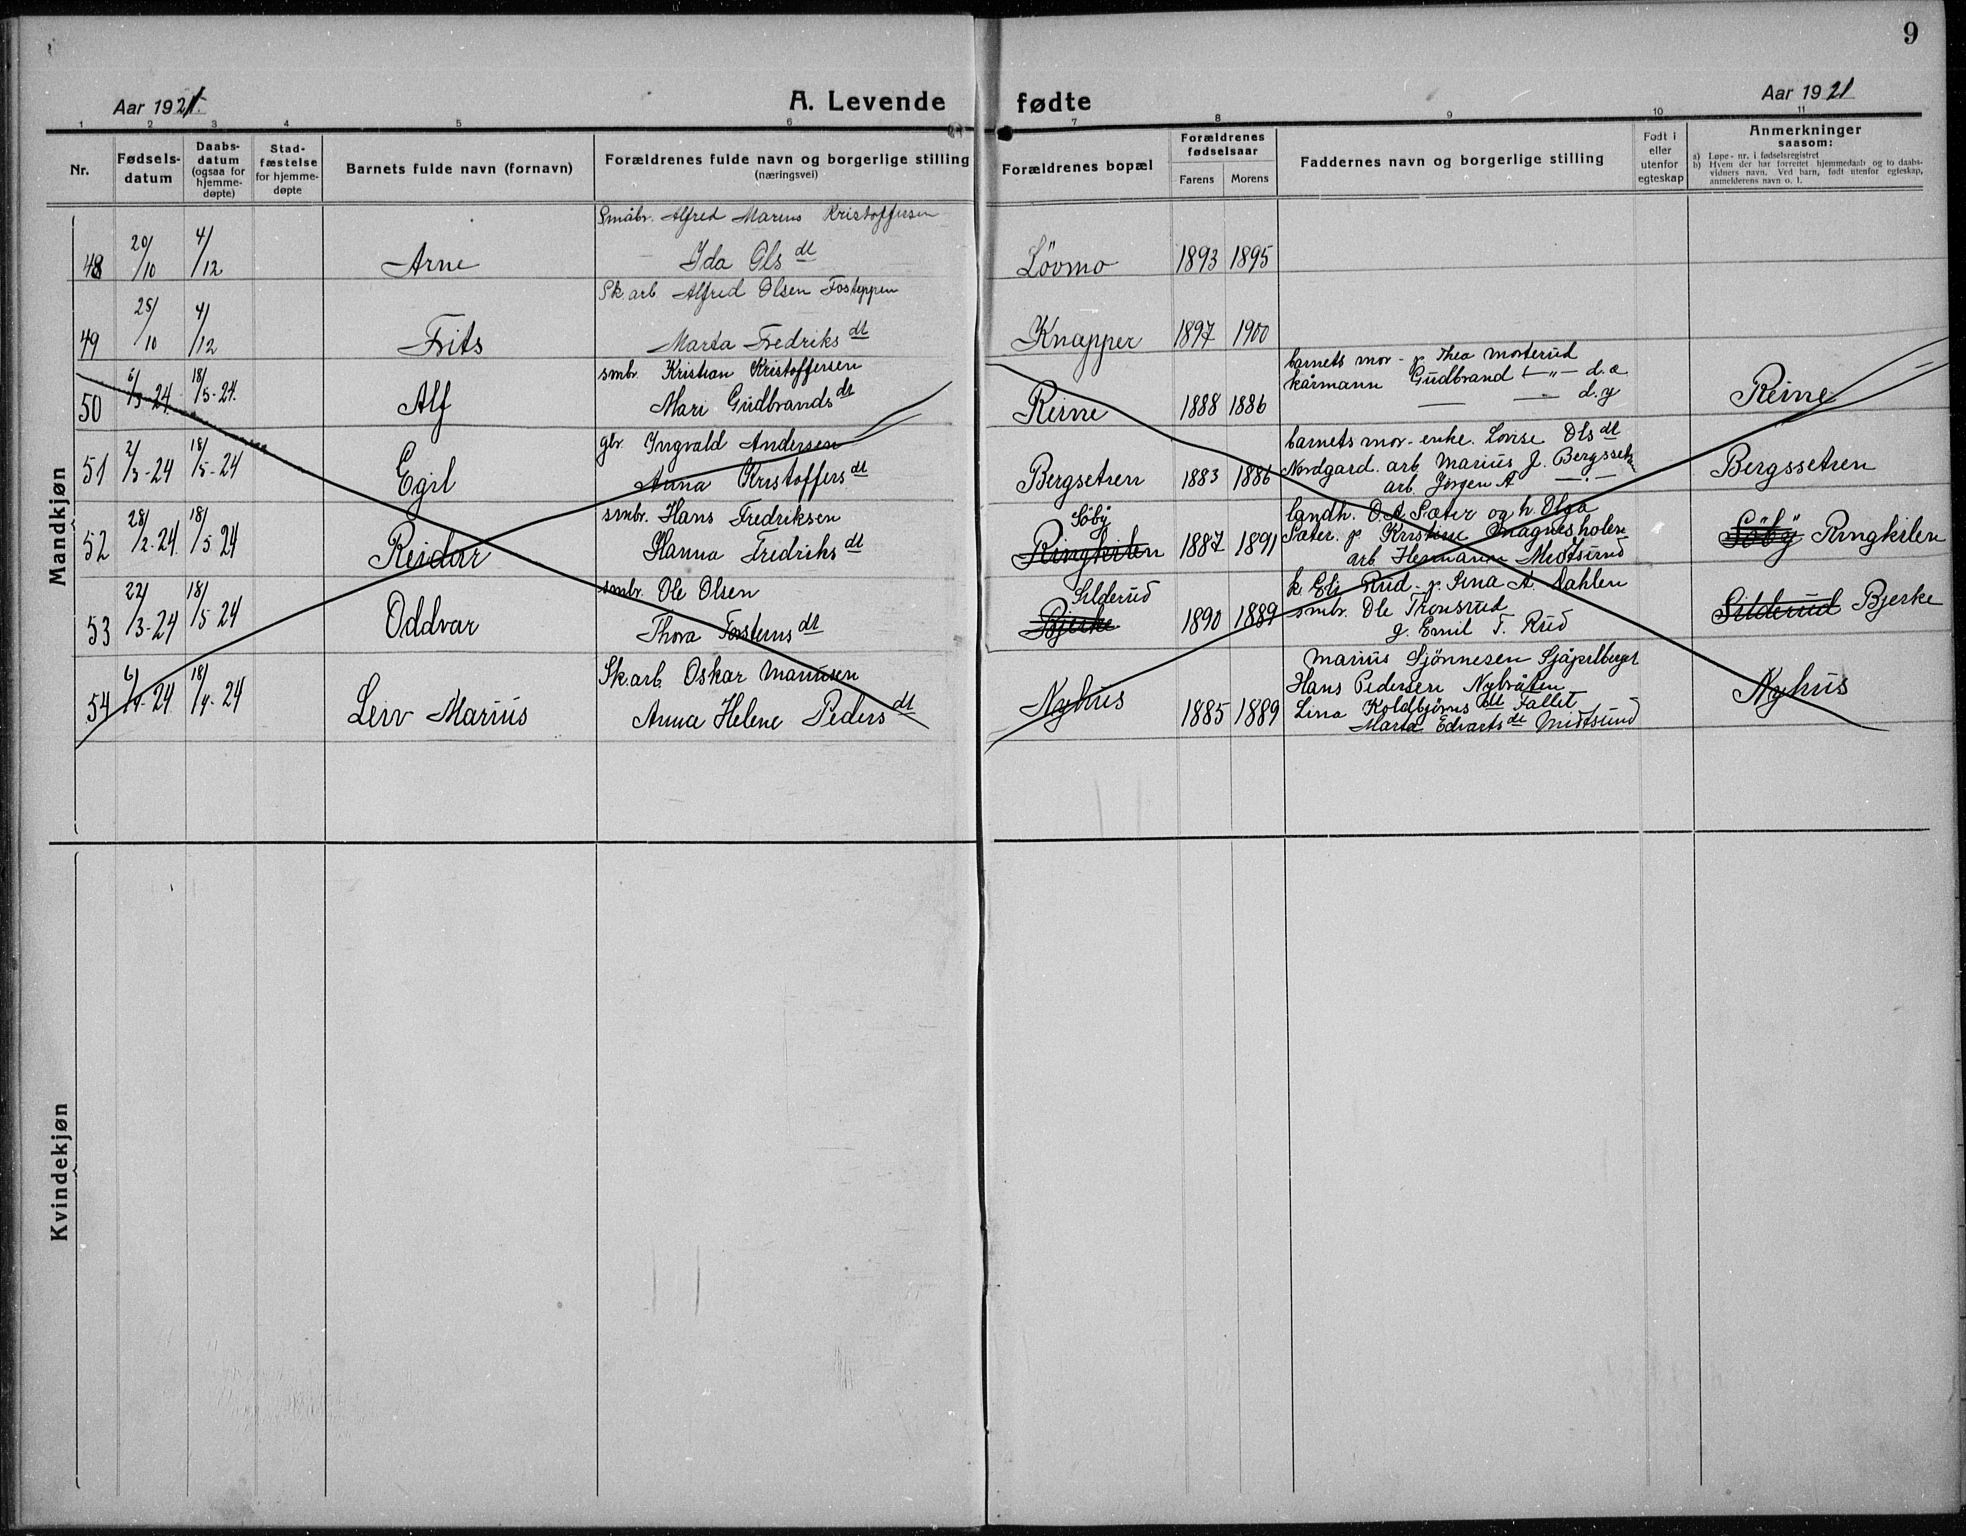 9
Aar 1921.
A. Levende fødte
Aar 1921
1 2 3 4 5 6 7 8 9 10 11
Nr.
Fødsels-
datum
Daabs-
datum
(ogsaa for
hjemme-
døpte)
Stad-
fæstelse
for hjemme-
døpte
Barnets fulde navn (fornavn)
Forældrenes fulde navn og borgerlige stilling
(næringsvei)
Forældrenes bopæl
Forældrenes
fødselsaar
Farens Morens
Faddernes navn og borgerlige stilling
Født i
eller
utenfor
egteskap
Anmerkninger
saasom:
a) Løpe-nr. i fødselsregistret
b) Hvem der har forrettet hjemmedaab og to daabs-
vidners navn. Ved barn, født utenfor egteskap,
anmelderens navn o. l.
Mandkjøn
Småbr. Alfred Marius Kristoffersen
48 20/10 4/12 Arne Ida Olsdt Lövmo 1893 1895
Sk.arb Alfred Olsen Fosteppen
49 25/10 4/12 Frits Marta Fredriksdt Knapper 1897 1900
smbr. Kristian Kristoffersen barnets mor - g Thea Morterud
kårmann Gudbrand —„— d.a
50 6/3-24 18/5-24. Alf Mari Gudbrandsdt Reine 1888 1886 — — d.y Reine
gbr. Ingvald Andersen barnets mor - enke. Lovise Olsdt
51 2/3-24 18/5-24 Egil Anna Kristoffersdt Bergsetren 1883 1886 Nordgard. arb. Marius J. Bergsset Bergssetren
arb. Jörgen A —·—
smbr. Hans Fredriksen Söby landh. O.A. Sæter og h. Olga
52 28/2-24. 18/5 24 Reidar Hanna Fredriksdt Ringkilen 1887 1891 Sæter. g Kristine Magnesholen Söby Ringkilen
arb Hermann Midtsund
smbr. Ole Olsen Silderud k Eli Rud - g. Lina A. Dahlen
53 22/3-24 18/5 24 Oddvar Thora Torstensdt Bjerke 1890 1889 smbr. Ole Tronsrud Silderud Bjerke
g. Emil T. Rud
Sk.arb. Oskar Mariusen Marius Sjönnesen Sjåpelberget
54 6/4-24 18/4-24 Leiv Marius Anna Helene Pedersdt Nyhus 1885 1889 Hans Pedersen Nybråten Nyhus
Lina Koldbjørnsdt Fallet
Marta Edvartsdt Midtsund
Kvindekjøn